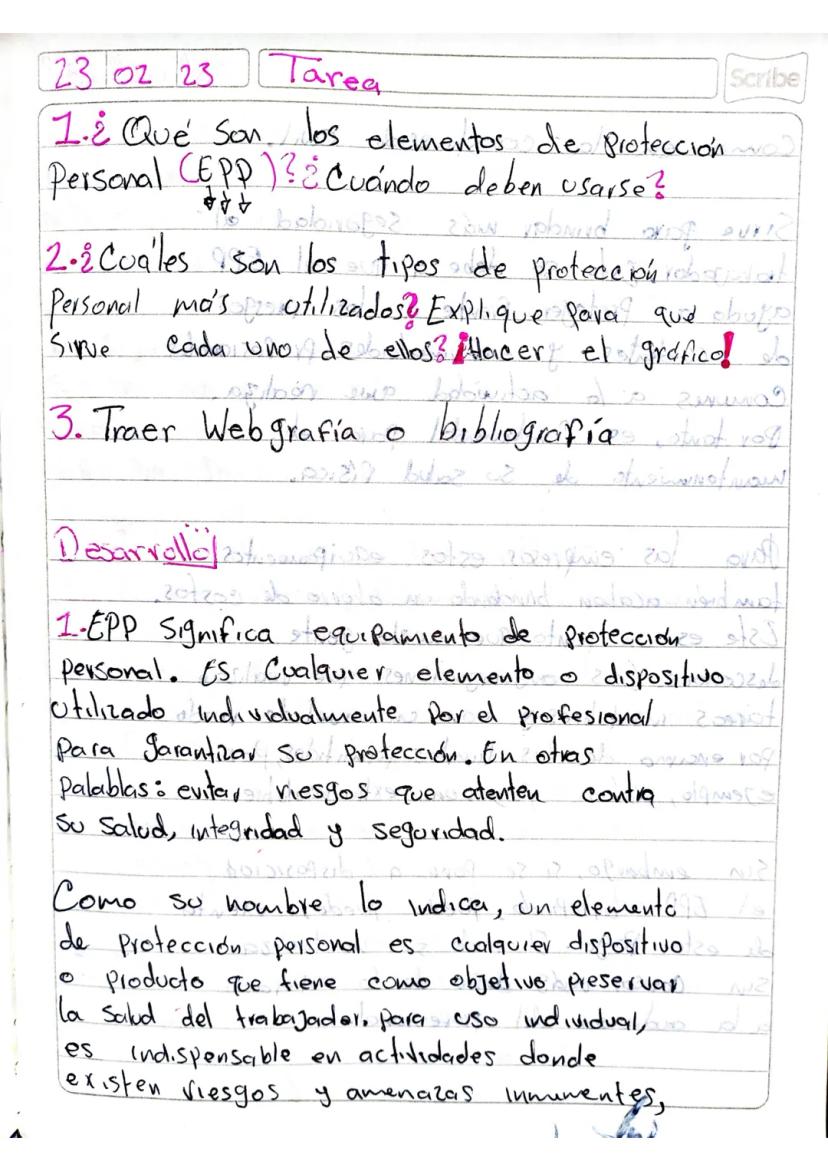 23 02 23 Tarea
Scribe
1.¿ Qué son los elementos de Protección
Personal (EPP)?¿Cuándo deben usarse?
2.¿Cuáles son los tipos de protección
Personal más utilizados? Explique para qué
sirve cada uno de ellos? ¡Hacer el gráfico!
3. Traer Webgrafía o bibliografía
Desarrollo
1.EPP significa equipamiento de protección
personal. Es cualquier elemento o dispositivo
utilizado individualmente por el profesional
para garantizar su protección. En otras
palablas: evitar riesgos que atenten contra
su salud, integridad y seguridad.
Como su nombre lo indica, un elemento
de protección personal es cualquier dispositivo
o producto que tiene como objetivo preservar
la salud del trabajador. para uso individual,
es indispensable en actividades donde
existen riesgos y amenazas inmunentes,